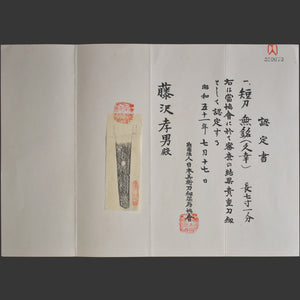 認定書
一、短刀 無銘(文章) 長七寸一分
右は當協會に於て審査の結果貴重刀剣
として認定する
昭和五十一年七月十七日
財団法人日本美術刀剣保存協会
藤沢孝男殿